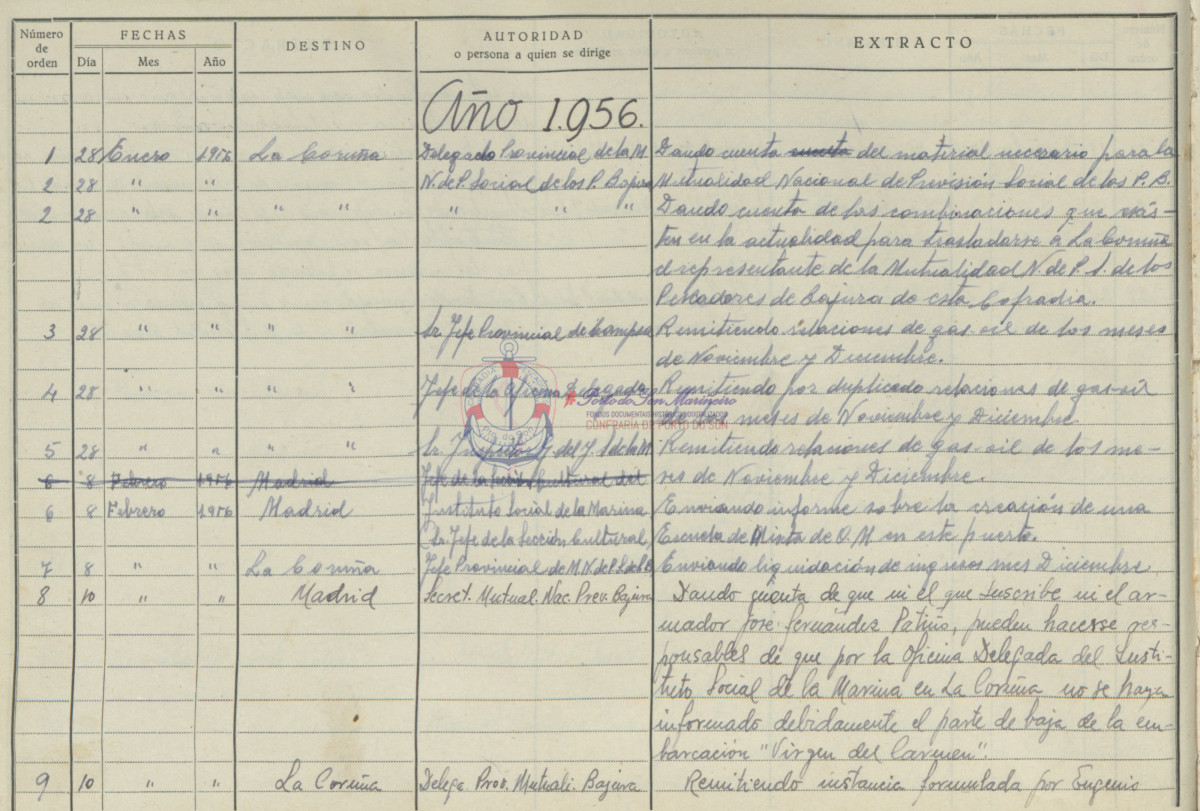 Número de orden FECHAS DESTINO AUTORIDAD o persona a quien se dirige EXTRACTO
Día Mes Año
Año 1.956.
1 28 Enero 1956 La Coruña Delegado Provincial de la M. Dando cuenta cuenta del material necesario para la
2 28 " " N. de P. Social de los P. Bajura Mutualidad Nacional de Previsión Social de los P. B.
2 28 " " " " " " " Dando cuenta de las combinaciones que exis-
ten en la actualidad para trasladarse a La Coruña
el representante de la Mutualidad N. de P. S. de los
Pescadores de Bajura de esta Cofradia.
3 28 " " " " Sr. Jefe Provincial de Campsa Remitiendo relaciones de gas-oil de los meses
de Noviembre y Diciembre.
4 28 " " " " Jefe de la Oficina Delegada Remitiendo por duplicado relaciones de gas-oil
de los meses de Noviembre y Diciembre.
5 28 " " " " Sr. Inspector del I. S. de la M. Remitiendo relaciones de gas-oil de los me-
6 8 Febrero 1956 Madrid Jefe de la Sección Cultural del ses de Noviembre y Diciembre.
6 8 Febrero 1956 Madrid Instituto Social de la Marina Enviando informe sobre la creación de una
(Sr. Jefe de la Sección Cultural) Escuela de Mixta de O. M. en este puerto.
7 8 " " La Coruña Jefe Provincial de M. N. de P. S. de P. B. Enviando liquidación de ingresos mes Diciembre
8 10 " " Madrid Secret. Mutual. Nac. Prev. Bajura Dando cuenta de que ni el que suscribe ni el ar-
mador José Fernández Patiño, pueden hacerse res-
ponsables de que por la Oficina Delegada del Insti-
tuto Social de la Marina en La Coruña no se haya
informado debidamente el parte de baja de la em-
barcación "Virgen del Carmen".
9 10 " " La Coruña Delega. Prov. Mutuali. Bajura Remitiendo instancia formulada por Eugenio
Porto do Son Mariñeiro
CONFRARÍA DE PORTO DO SON